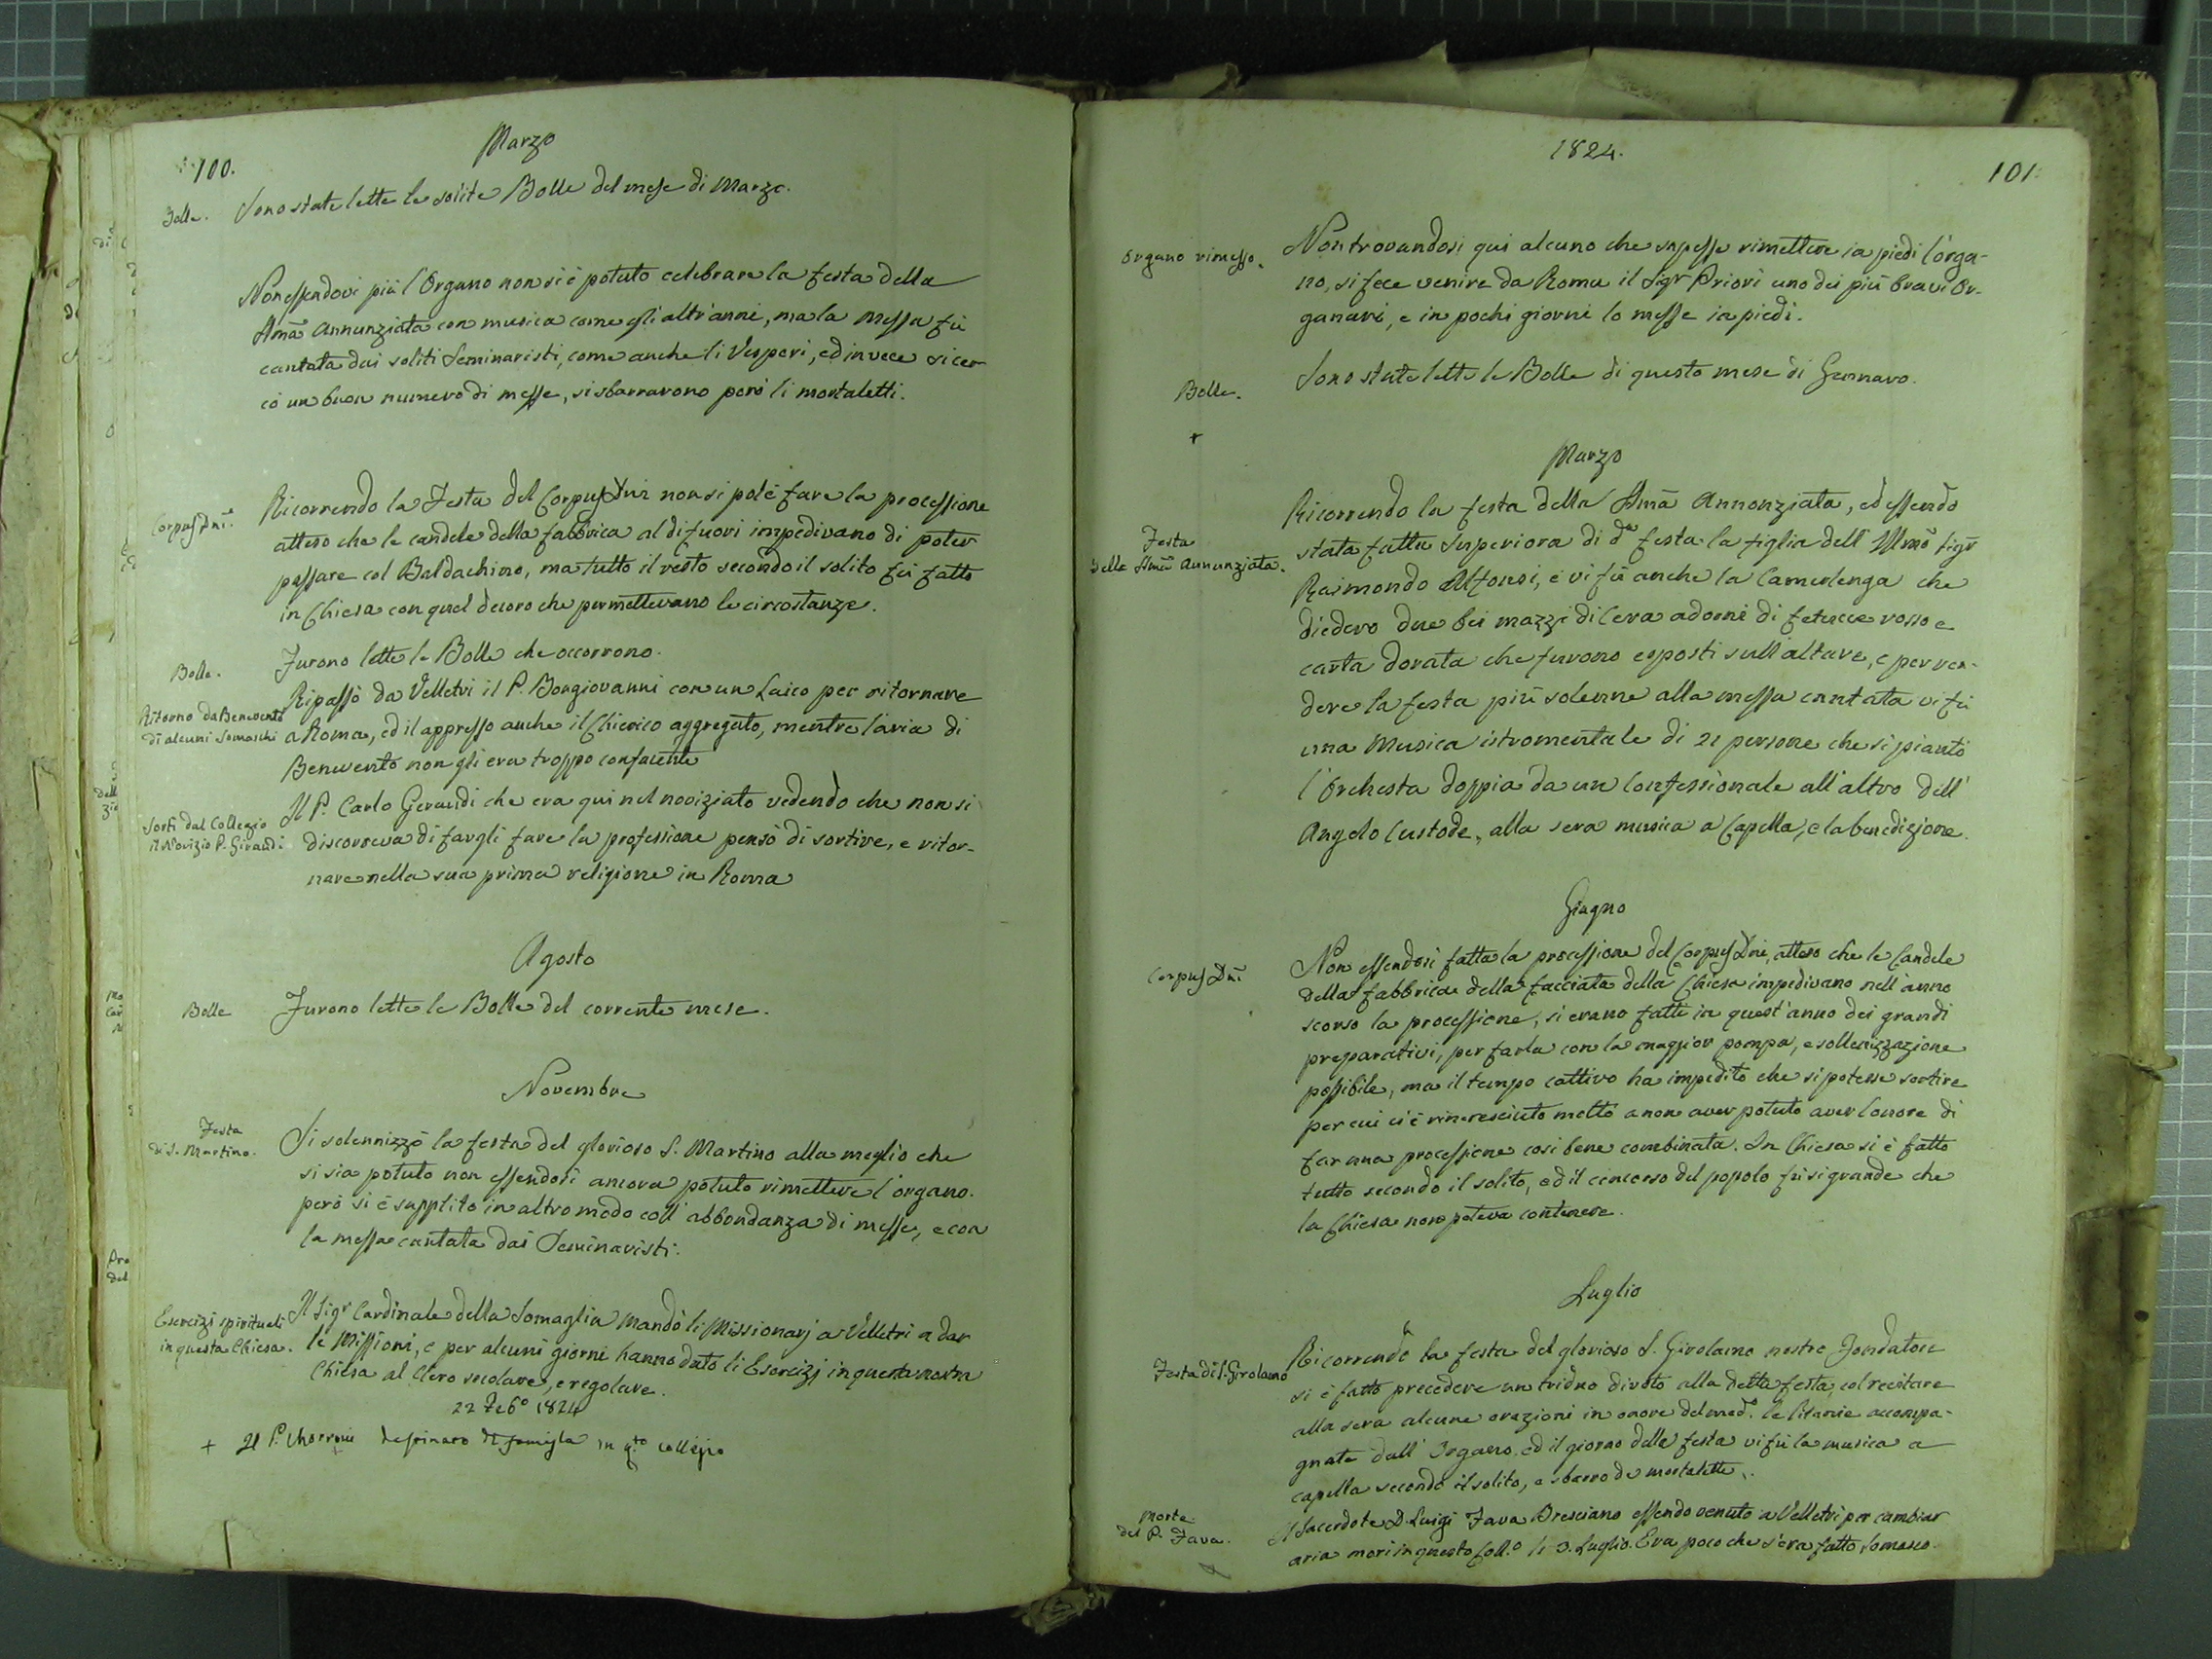 100.
Marzo
Bolle.
Sono state lette le solite Bolle del mese di Marzo.
Non essendovi più l'Organo non si è potuto celebrare la festa della
SSmã Annunziata con musica come gli altri anni, ma la messa fù
cantata dai soliti Seminaristi, come anche li Vesperi, ed invece si cer-
cò un buon numero di messe, si sbarrarono però li mortaletti.
Corpus Dnĩ.
Ricorrendo la Festa del Corpus Dni non si potè fare la processione
atteso che le candele della fabbrica al di fuori impedivano di poter
passare col Baldachino, ma tutto il resto secondo il solito fù fatto
in Chiesa con quel decoro che permettevano le circostanze.
Bolle.
Furono lette le Bolle che occorrono.
Ritorno da Benevento
di alcuni Somaschi
Ripassò da Velletri il P. Bongiovanni con un Laico per ritornare
a Roma, ed il appresso anche il Chierico aggregato, mentre l'aria di
Benevento non gli era troppo confacente
Sorti dal Collegio
il Novizio P. Giraudi
Il P. Carlo Geraudi che era qui nel noviziato vedendo che non si
discorreva di fargli fare la professione pensò di sortire, e ritor-
nare nella sua prima religione in Roma
Agosto
Bolle
Furono lette le Bolle del corrente mese.
Novembre
Festa
di S. Martino.
Si solennizzò la festa del glorioso S. Martino alla meglio che
si sia potuto non essendosi ancora potuto rimettere l'organo.
però si è supplito in altro modo coll'abbondanza di messe, e con
la messa cantata dai Seminaristi.
Esercizi spirituali
in questa Chiesa.
Il Sigr Cardinale della Somaglia mandò li Missionarj a Velletri a dar
le Missioni, e per alcuni giorni hanno dato li Esercizj in questa nostra
Chiesa al Clero secolare, e regolare.
22 Febo 1824
+ Il P. di famiglia in q.to collegio
1824.
101.
Organo rimesso.
Non trovandosi qui alcuno che sapesse rimettere in piedi l'orga-
no, si fece venire da Roma il Sigr Priori uno dei più bravi Or-
ganari, e in pochi giorni lo messe in piedi.
Bolle.
Sono state lette le Bolle di questo mese di Gennaro.
+
Marzo
Festa
della SSmã Annunziata.
Ricorrendo la festa della SSmã Annonziata, ed essendo
stata fatta Superiora di da festa la figlia dell'Illmõ Sigr
Raimondo Alfonsi, e vi fù anche la Camerlenga che
diedero due bei mazzi di Cera adorni di fetucce rosse e
carta dorata che furono esposti sull'altare, e per ren-
dere la festa più solenne alla messa cantata vi fù
una Musica istromentale di 21 persone che si piantò
l'Orchesta doppia da un Confessionale all'altro dell'
Angelo Custode, alla sera musica a Capella, e la benedizione.
Giugno
Corpus Dnĩ
Non essendosi fatta la processione del Corpus Dni, atteso che le Candele
della fabbrica della facciata della Chiesa impedivano nell'anno
scorso la processione, si erano fatti in quest'anno dei grandi
preparativi, per farla con la maggior pompa, e sollenizzazione
possibile, ma il tempo cattivo ha impedito che si potesse sortire
per cui ci è rincresciuto molto a non aver potuto aver l'onore di
far una processione così bene combinata. In Chiesa si è fatto
tutto secondo il solito, ed il concorso del popolo fù sì grande che
la Chiesa non poteva contenere.
Luglio
Festa di S. Girolamo
Ricorrendo la festa del glorioso S. Girolamo nostro Fondatore
si è fatto precedere un triduo divoto alla detta festa, col recitare
alla sera alcune orazioni in onore del medo. le litanie accompa-
gnate dall'Organo, ed il giorno della festa vi fù la musica a
capella secondo il solito, e sbarro de mortaletti.
Morte
del P. Fava.
Il Sacerdote D. Luigi Fava Bresciano essendo venuto a Velletri per cambiar
aria morì in questo Coll.o li 3. Luglio. Era poco che s'era fatto Somasco.